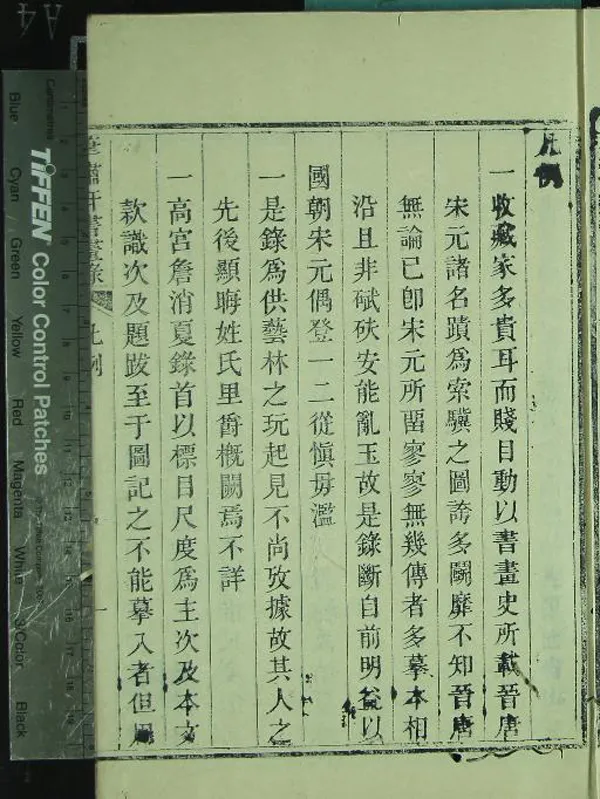 凡例
一收藏家多貴耳而賤目動以書畫史所載晉唐
宋元諸名蹟爲索驥之圖誇多鬭靡不知晉唐
無論已卽宋元所畱寥寥無幾傳者多摹本相
沿且非碔砆安能亂玉故是錄斷自前明益以
國朝宋元偶登一二從愼毋濫
一是錄爲供藝林之玩起見不尚攷據故其人之
先後顯晦姓氏里爵概闕焉不詳
一高宮詹消夏錄首以標目尺度爲主次及本文
款識次及題跋至于圖記之不能摹入者但用
書畫錄
凡例
一
A4
Centimetres
TIFFEN Color Control Patches
Blue
Cyan
Green
Yellow
Red
Magenta
White
3/Color
Black